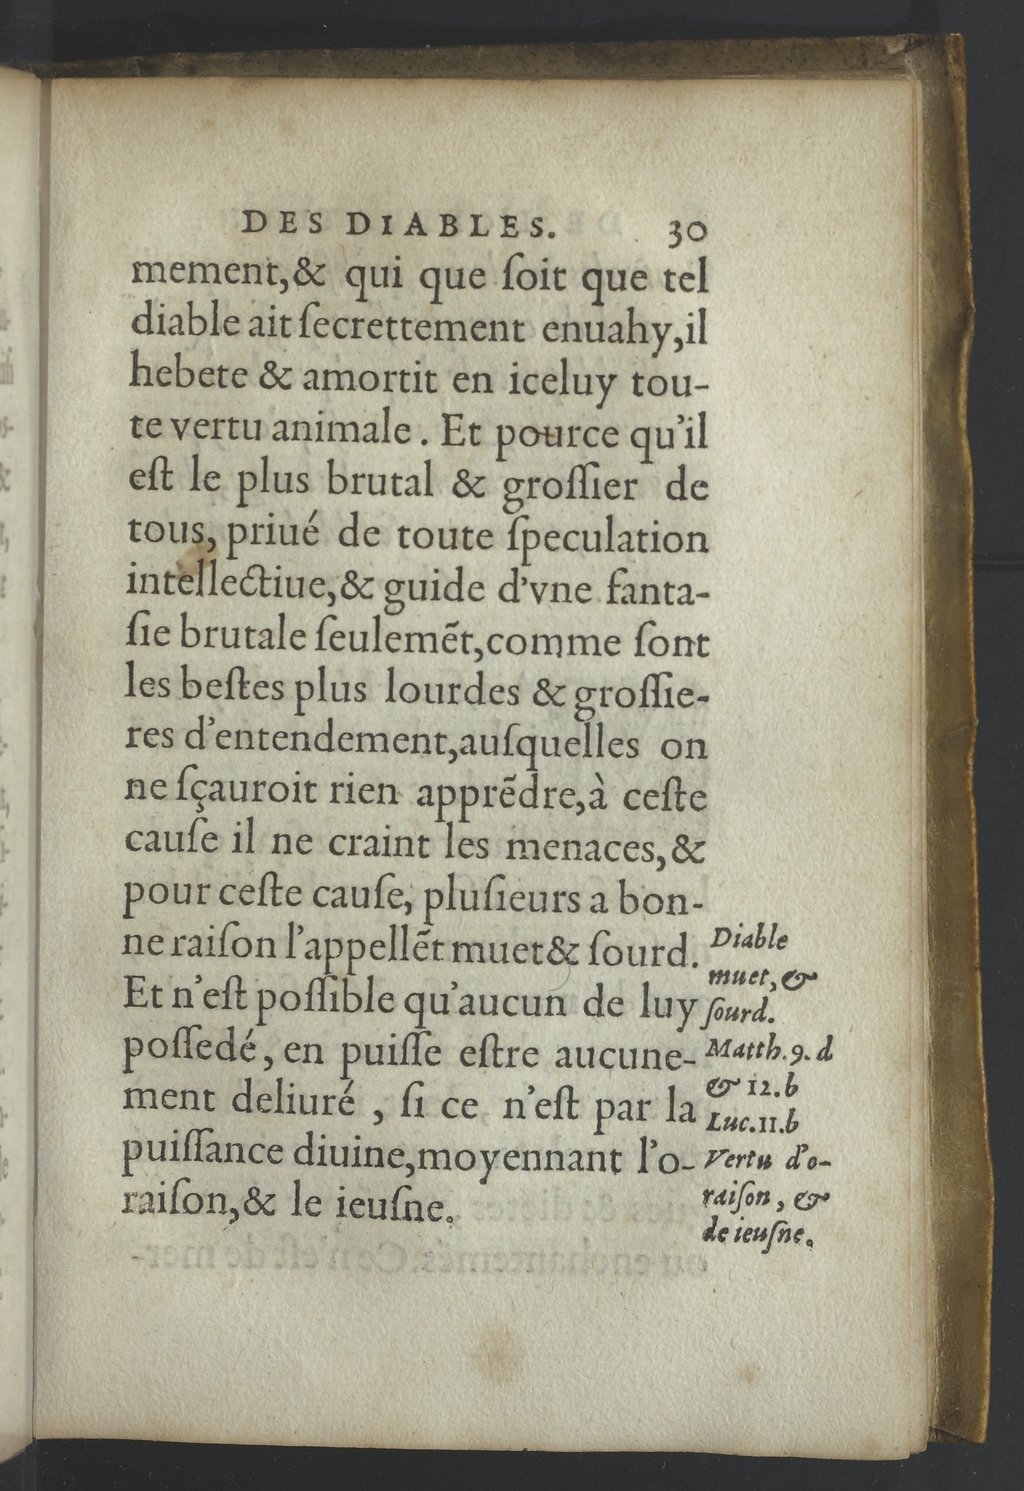 DES DIABLES. 30
mement,& qui que ſoit que tel
diable ait ſecrettement enuahy,il
hebete & amortit en iceluy tou-
te vertu animale. Et pource qu'il
eſt le plus brutal & groſſier de
tous, priué de toute ſpeculation
intellectiue,& guide d'vne fanta-
ſie brutale ſeulemẽt,comme ſont
les beſtes plus lourdes & groſſie-
res d'entendement,auſquelles on
ne ſçauroit rien apprẽdre,à ceſte
cauſe il ne craint les menaces,&
pour ceſte cauſe, pluſieurs a bon-
ne raiſon l'appellẽt muet & ſourd.
Et n'eſt poſſible qu'aucun de luy
poſſedé, en puiſſe eſtre aucune-
ment deliuré, ſi ce n'eſt par la
puiſſance diuine,moyennant l'o-
raiſon,& le ieuſne.
Diable
muet, &
ſourd.
Matth.9.d
& 12.b
Luc.11.b
Vertu d'o-
raiſon, &
de ieuſne.